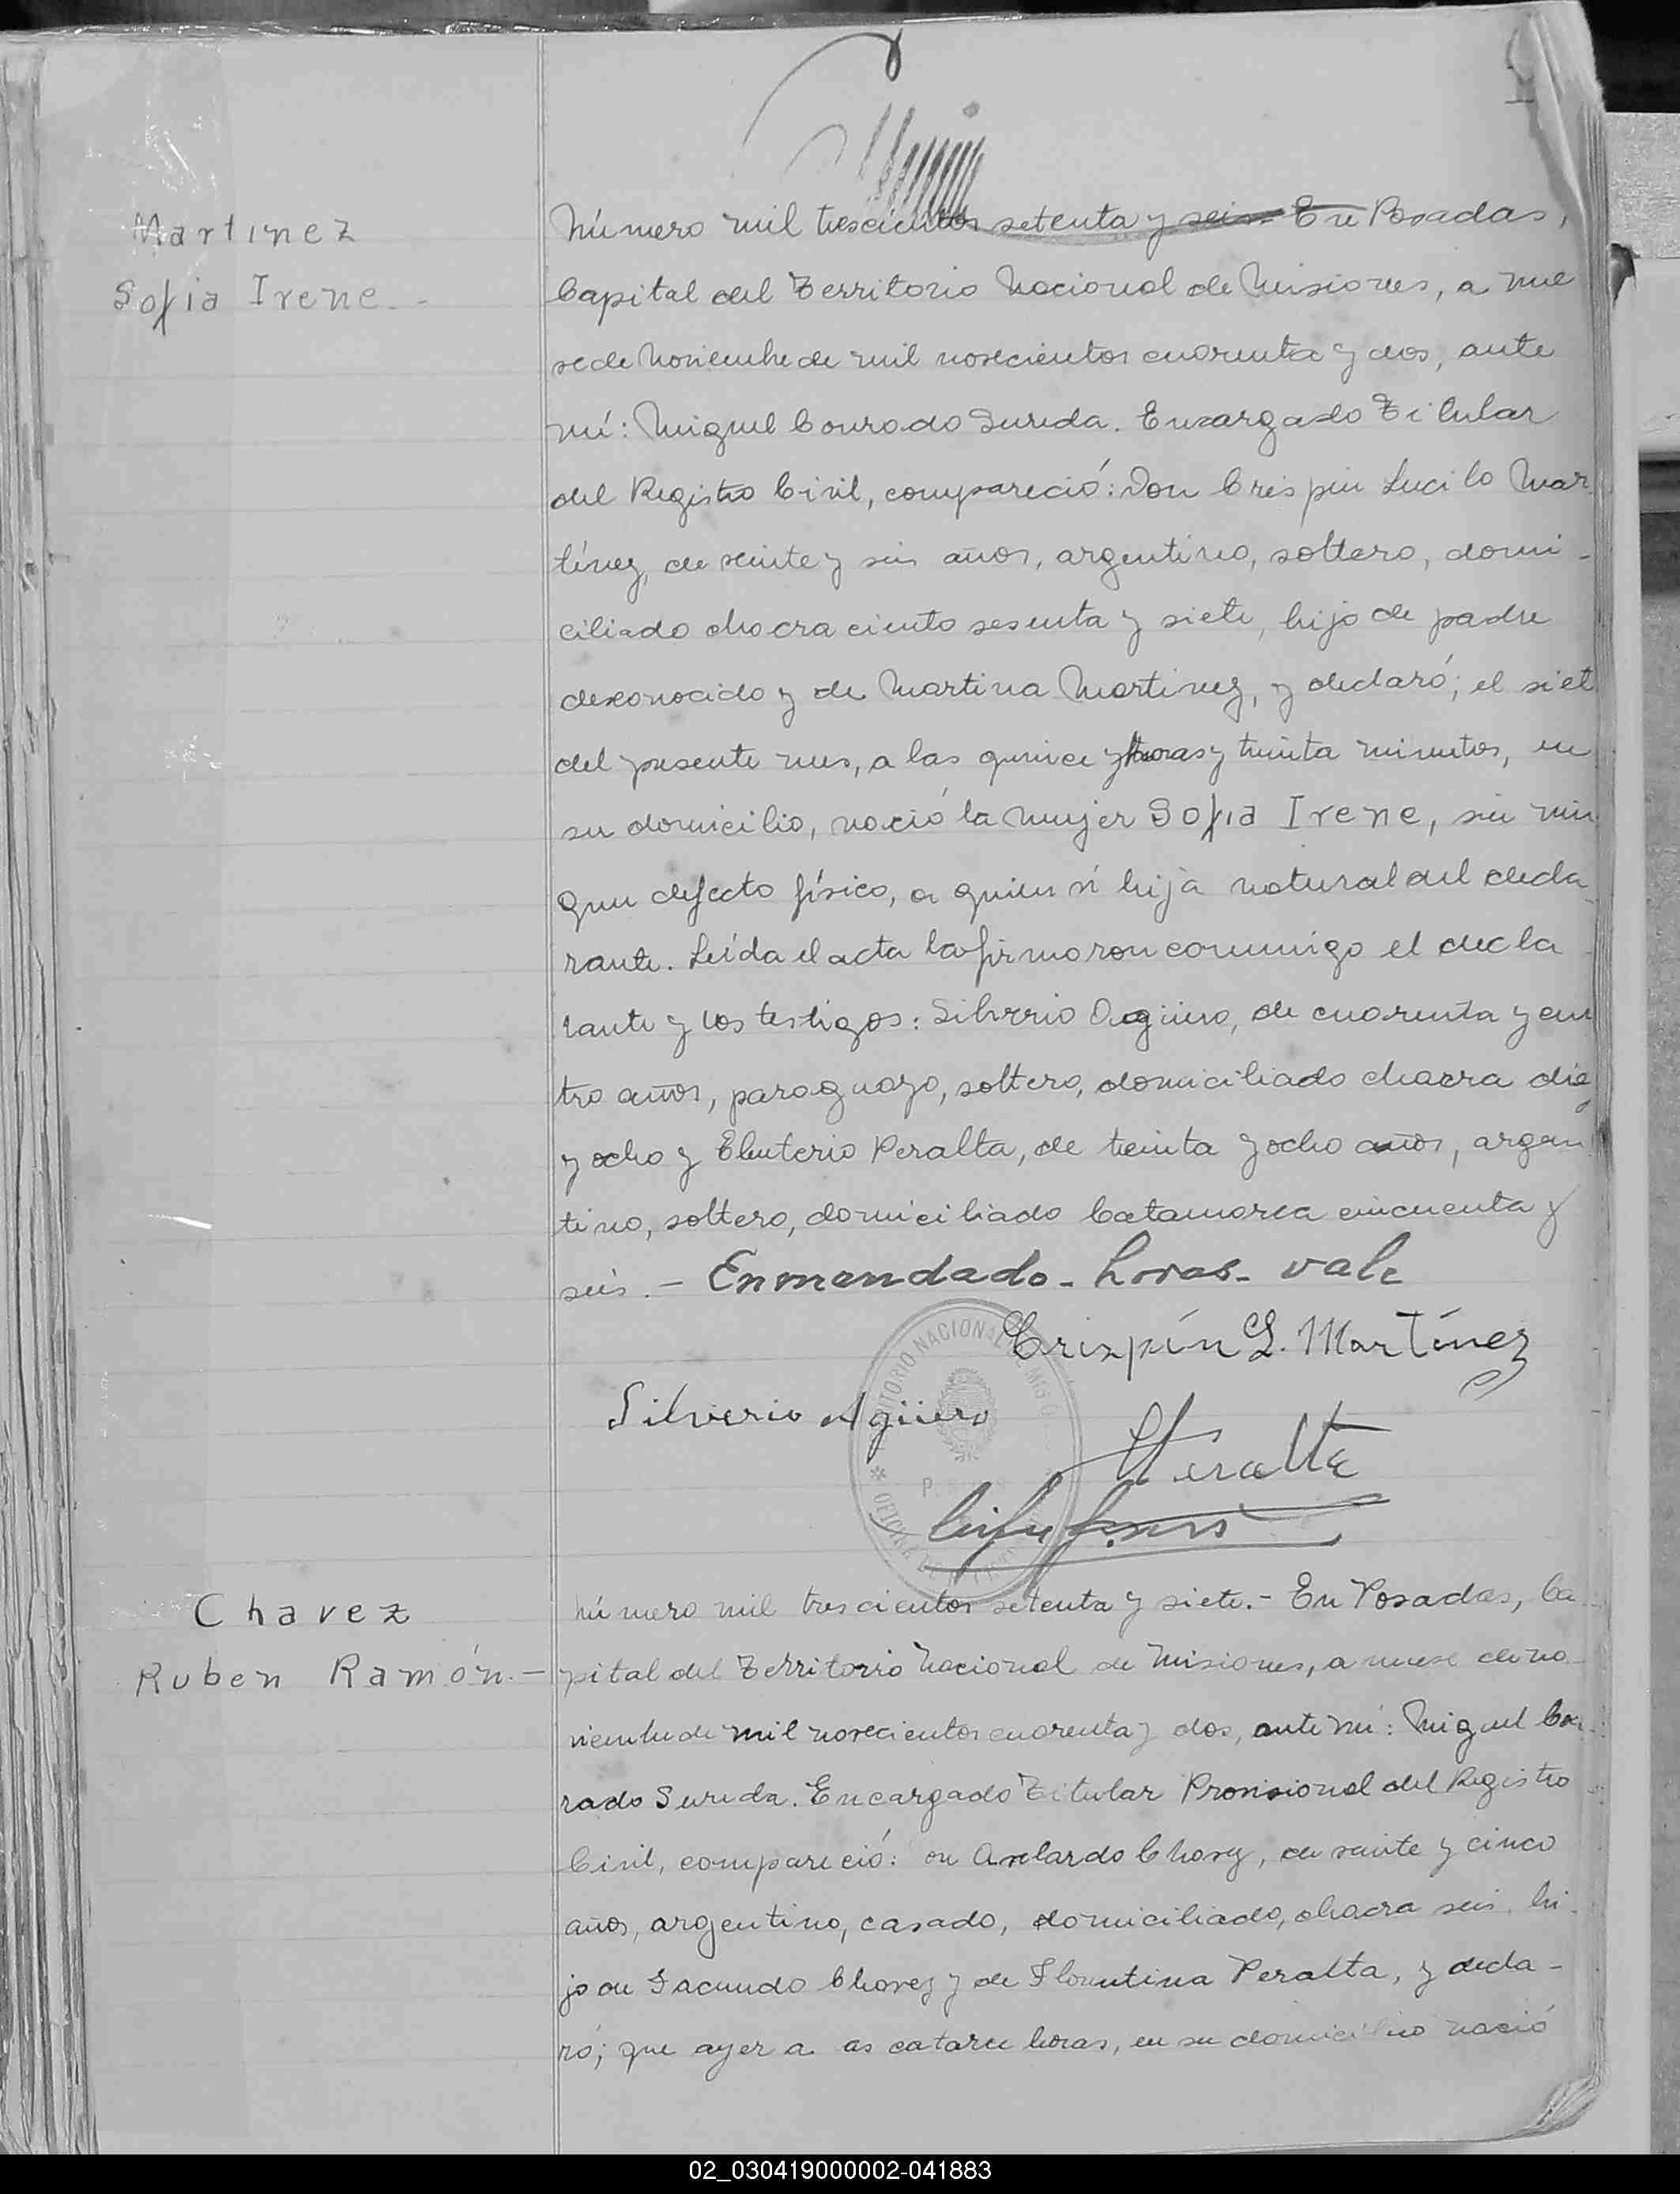 Martinez
Sofia Irene.-
Número mil trescientos setenta y seis.- En Posadas,
Capital del Territorio Nacional de Misiones, a nue
ve de Noviembre de mil novecientos cuarenta y dos, ante
mí: Miguel Conrado Sureda. Encargado Titular
del Registro Civil, compareció: Don Crespin Lucilo Mar
tínez, de veinte y seis años, argentino, soltero, domi-
ciliado chacra ciento sesenta y siete, hijo de padre
desconocido y de Martina Martinez, y declaró; el siet
del presente mes, a las quince horas y treinta minutos, en
su domicilio, nació la mujer Sofia Irene, sin nin
gun defecto físico, a quien vi hija natural del decla
rante. Leída el acta la firmaron conmigo el decla
rante y los testigos: Silverio Agüero, de cuarenta y cua
tro años, paraguayo, soltero, domiciliado chacra diez
y ocho y Eleuterio Peralta, de treinta y ocho años, argen
tino, soltero, domiciliado Catamarca cincuenta y
seis.- Enmendado- horas- vale
Crispín L. Martínez
Silverio Agüero
Peralta
TERRITORIO NACIONAL DE MIS
OFICINA
Chavez
Ruben Ramón.-
Número mil trescientos setenta y siete.- En Posadas, Ca
pital del Territorio Nacional de Misiones, a nueve de no
viembre de mil novecientos cuarenta y dos, ante mí: Miguel Con
rado Sureda. Encargado Titular Provisional del Registro
Civil, compareció: on Avelardo Chavez, de veinte y cinco
años, argentino, casado, domiciliado, chacra seis, hi-
jo de Facundo Chavez y de Florentina Peralta, y decla-
ró; que ayer a as catorce horas, en su domicilio nació
02_030419000002-041883